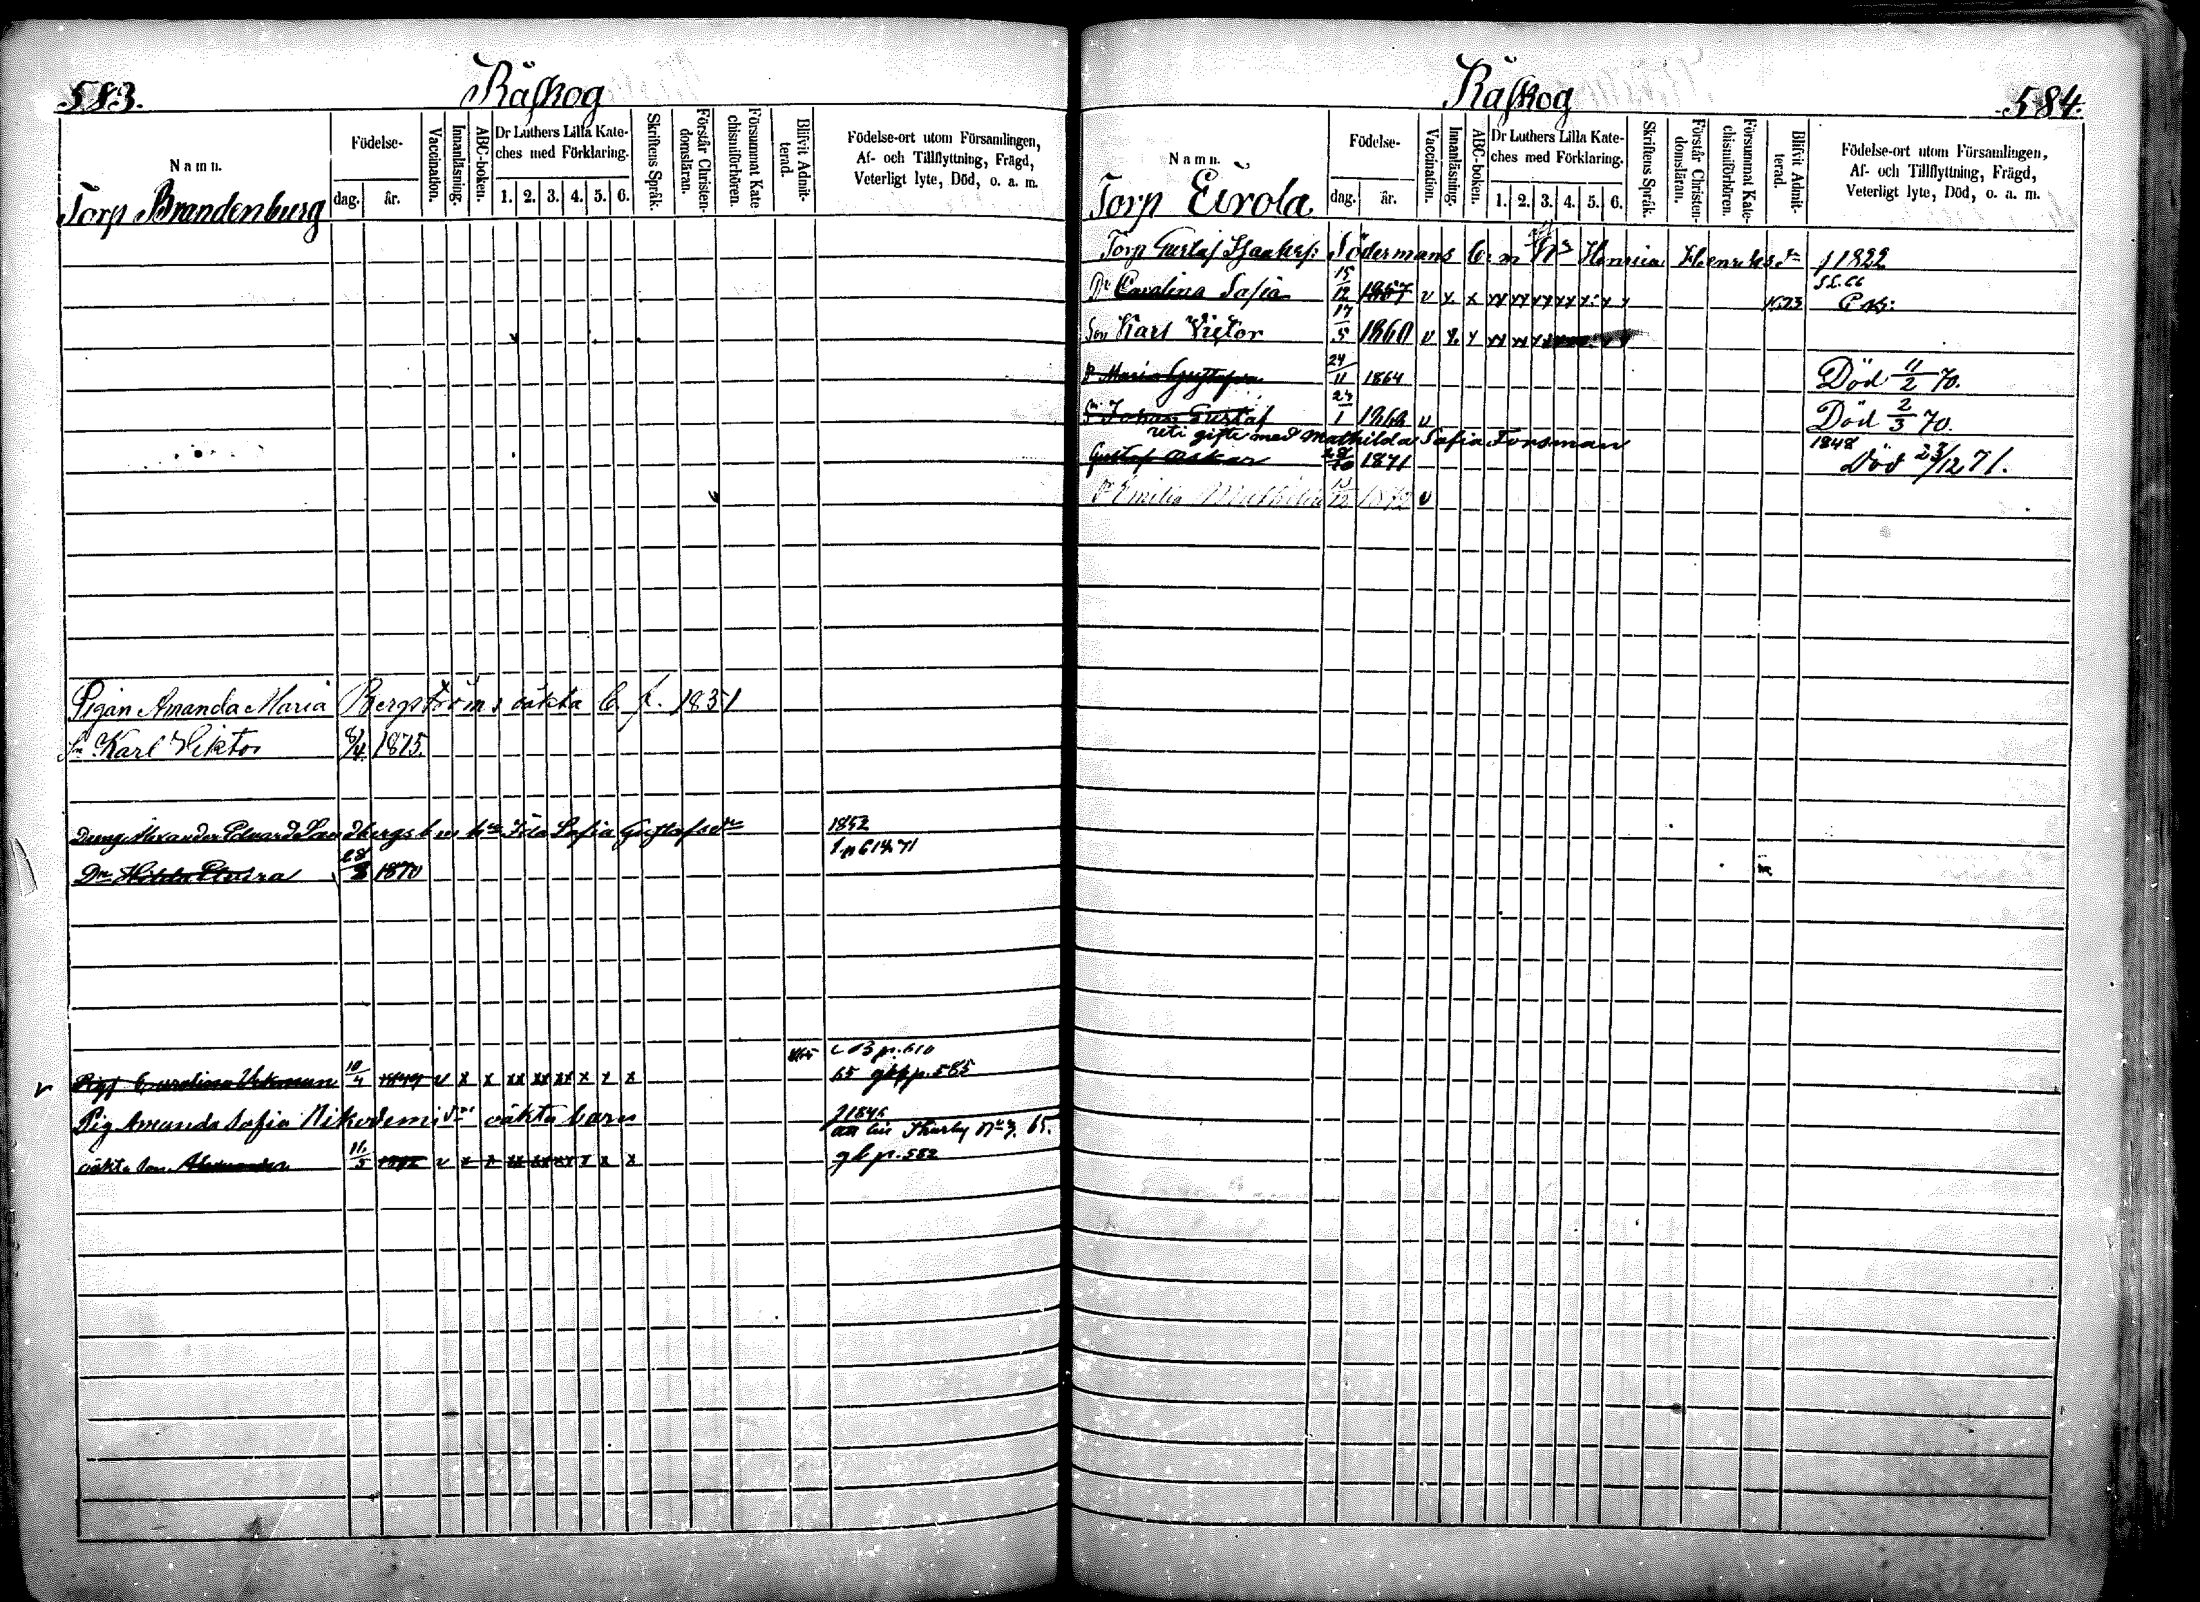 583.
Råskog
Namn.
Torp Brandenburg
Födelse-
dag. år.
Vaccination.
Innanläsning.
ABC-boken.
Dr Luthers Lilla Kate-
ches med Förklaring.
1. 2. 3. 4. 5. 6.
Skriftens Språk.
Förstår Christen-
domsläran.
Försummat Kate-
chismiförhören.
Blifvit Admit-
terad.
Födelse-ort utom Församlingen,
Af- och Tillflyttning, Frägd,
Veterligt lyte, Död, o. a. m.
Pigan Amanda Maria Bergströms oäkta b. f. 1851
Sn Karl Viktor 8/4 1875.
Dreng Alexander Eduard b m h Ida Sofia Gustafsdr 1852
Dr Hilda 28/3 1870
1865
Pig Carolina 10/4 1849 v x x xx xx xx x x x 65 p. 585
Pig Amanda Sofia Nikodemidr oäkta barn f 1846
oäkta son Alexander 11/5 v x x xx xx xx x x x p. 582
584.
Råskog
Namn.
Torp Eirola
Födelse-
dag. år.
Vaccination.
Innanläsning.
ABC-boken.
Dr Luthers Lilla Kate-
ches med Förklaring.
1. 2. 3. 4. 5. 6.
Skriftens Språk.
Förstår Christen-
domsläran.
Försummat Kate-
chismiförhören.
Blifvit Admit-
terad.
Födelse-ort utom Församlingen,
Af- och Tillflyttning, Frägd,
Veterligt lyte, Död, o. a. m.
Torp Gustaf Isaaksf: Södermans b. m Henrica Henriksdr f 1822
Dr Carolina Sofia 15/12 1857 v x x xx xx xx xx x x
Son Karl Victor 17/5 1860 v x x xx xx
Dr Maria Gustafva 24/11 1864 Död 11/2 70.
Sn Johan Gustaf 23/1 1868 v Död 2/3 70.
gifte med Mathilda Sofia Forsman 1848
Gustaf Oskar 28/10 1871 Död 23/12 71.
Dr Emilia Mathilda v